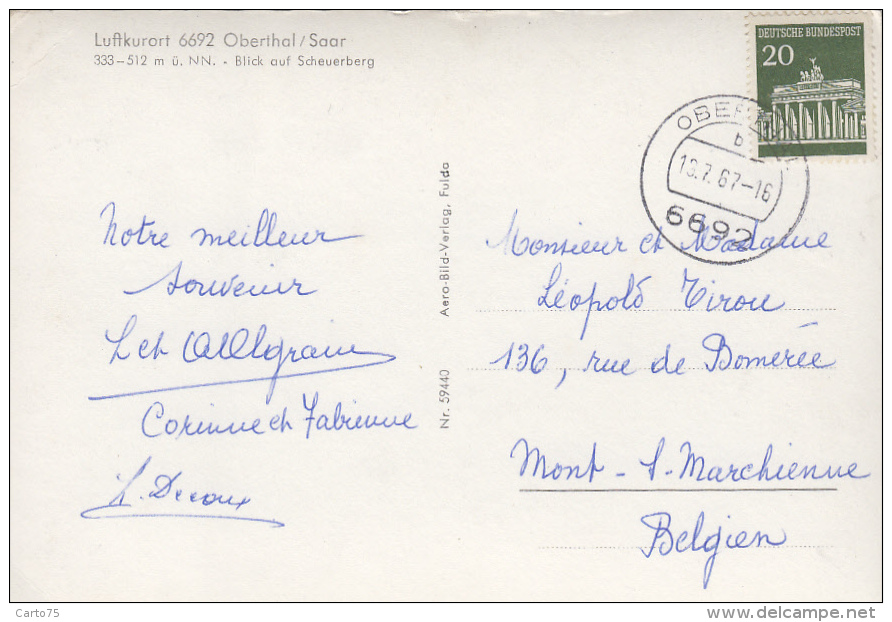 Luftkurort 6692 Oberthal/Saar
333–512 m ü. NN. - Blick auf Scheuerberg
DEUTSCHE BUNDESPOST
20
b
7.67-16
6692
Notre meilleur
souvenir
L et
Corinne et Fabienne
Nr. 59440 Aero-Bild-Verlag, Fulda
Monsieur et Madame
Léopold Tirou
136, rue de Bomerée
Mont-s-Marchienne
Belgien
Carto75
delcampe.net